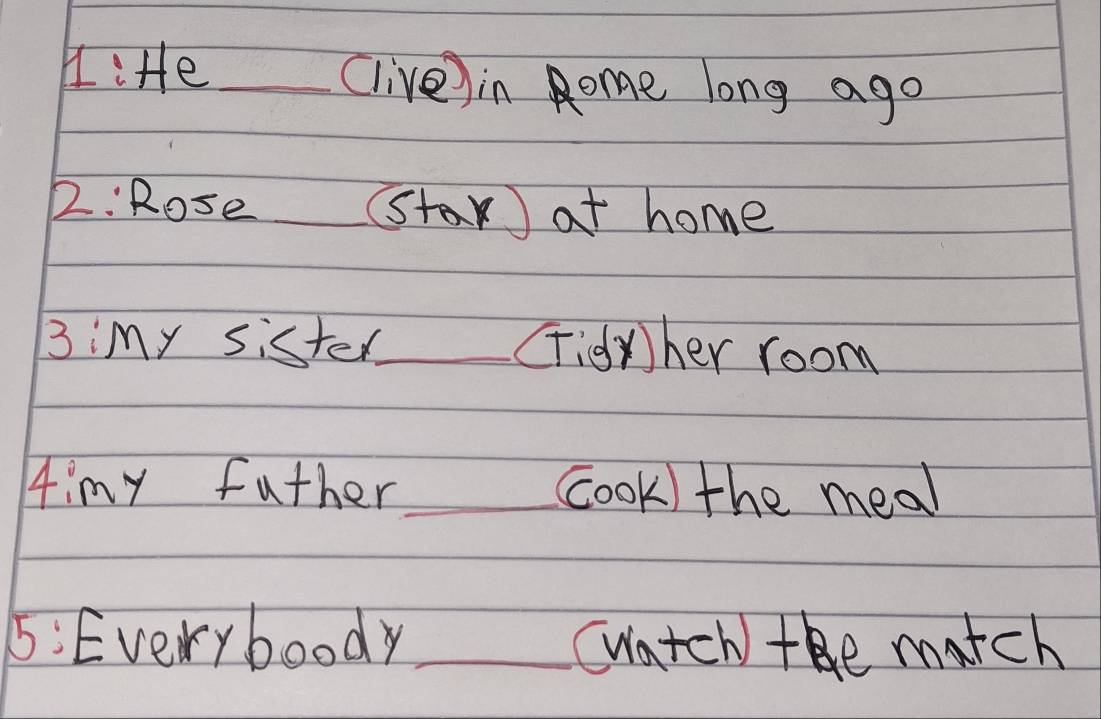 1:He ____ (live) in Rome long ago
2:Rose ____ (stay) at home
3:My sister ____ (Tidy) her room
4:my futher ____ (cook) the meal
5:Everyboody ____ (watch) the match